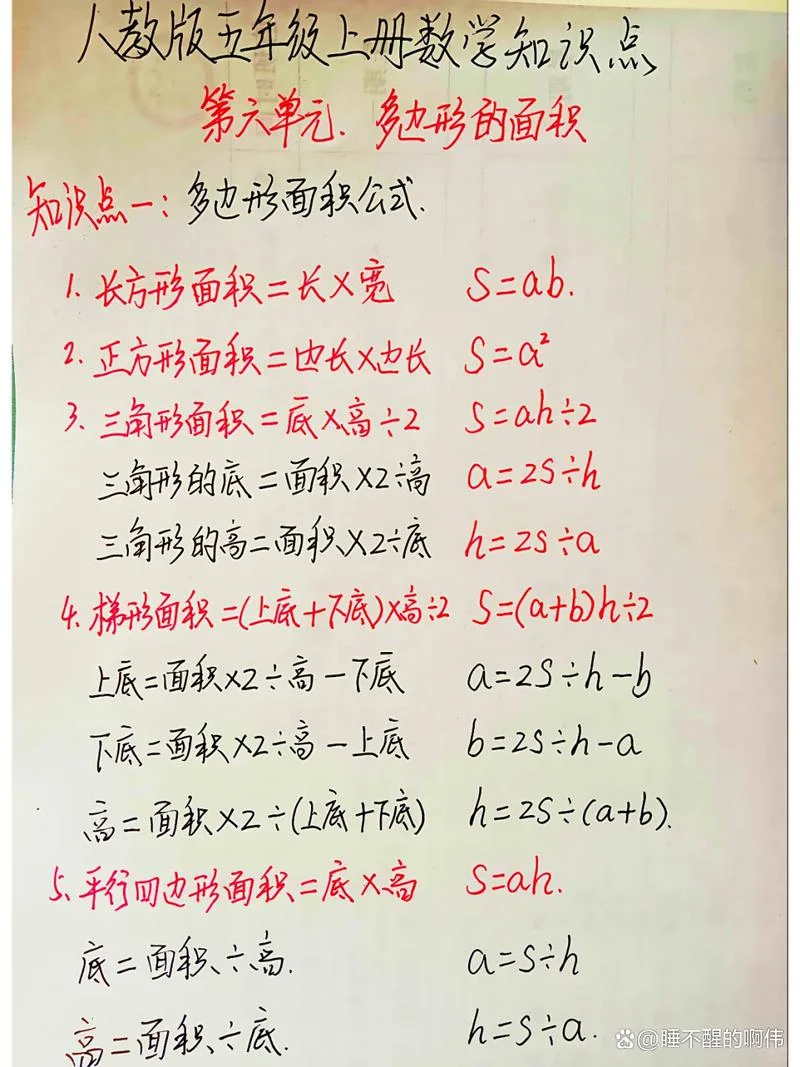 人教版五年级上册数学知识点
第六单元. 多边形的面积
知识点一: 多边形面积公式.
1. 长方形面积=长×宽 S=ab.
2. 正方形面积=边长×边长 S=a²
3. 三角形面积=底×高÷2 S=ah÷2
三角形的底=面积×2÷高 a=2S÷h
三角形的高=面积×2÷底 h=2S÷a
4. 梯形面积=(上底+下底)×高÷2 S=(a+b)h÷2
上底=面积×2÷高-下底 a=2S÷h-b
下底=面积×2÷高-上底 b=2S÷h-a
高=面积×2÷(上底+下底) h=2S÷(a+b).
5. 平行四边形面积=底×高 S=ah.
底=面积÷高. a=S÷h
高=面积÷底. h=S÷a.
@睡不醒的啊伟